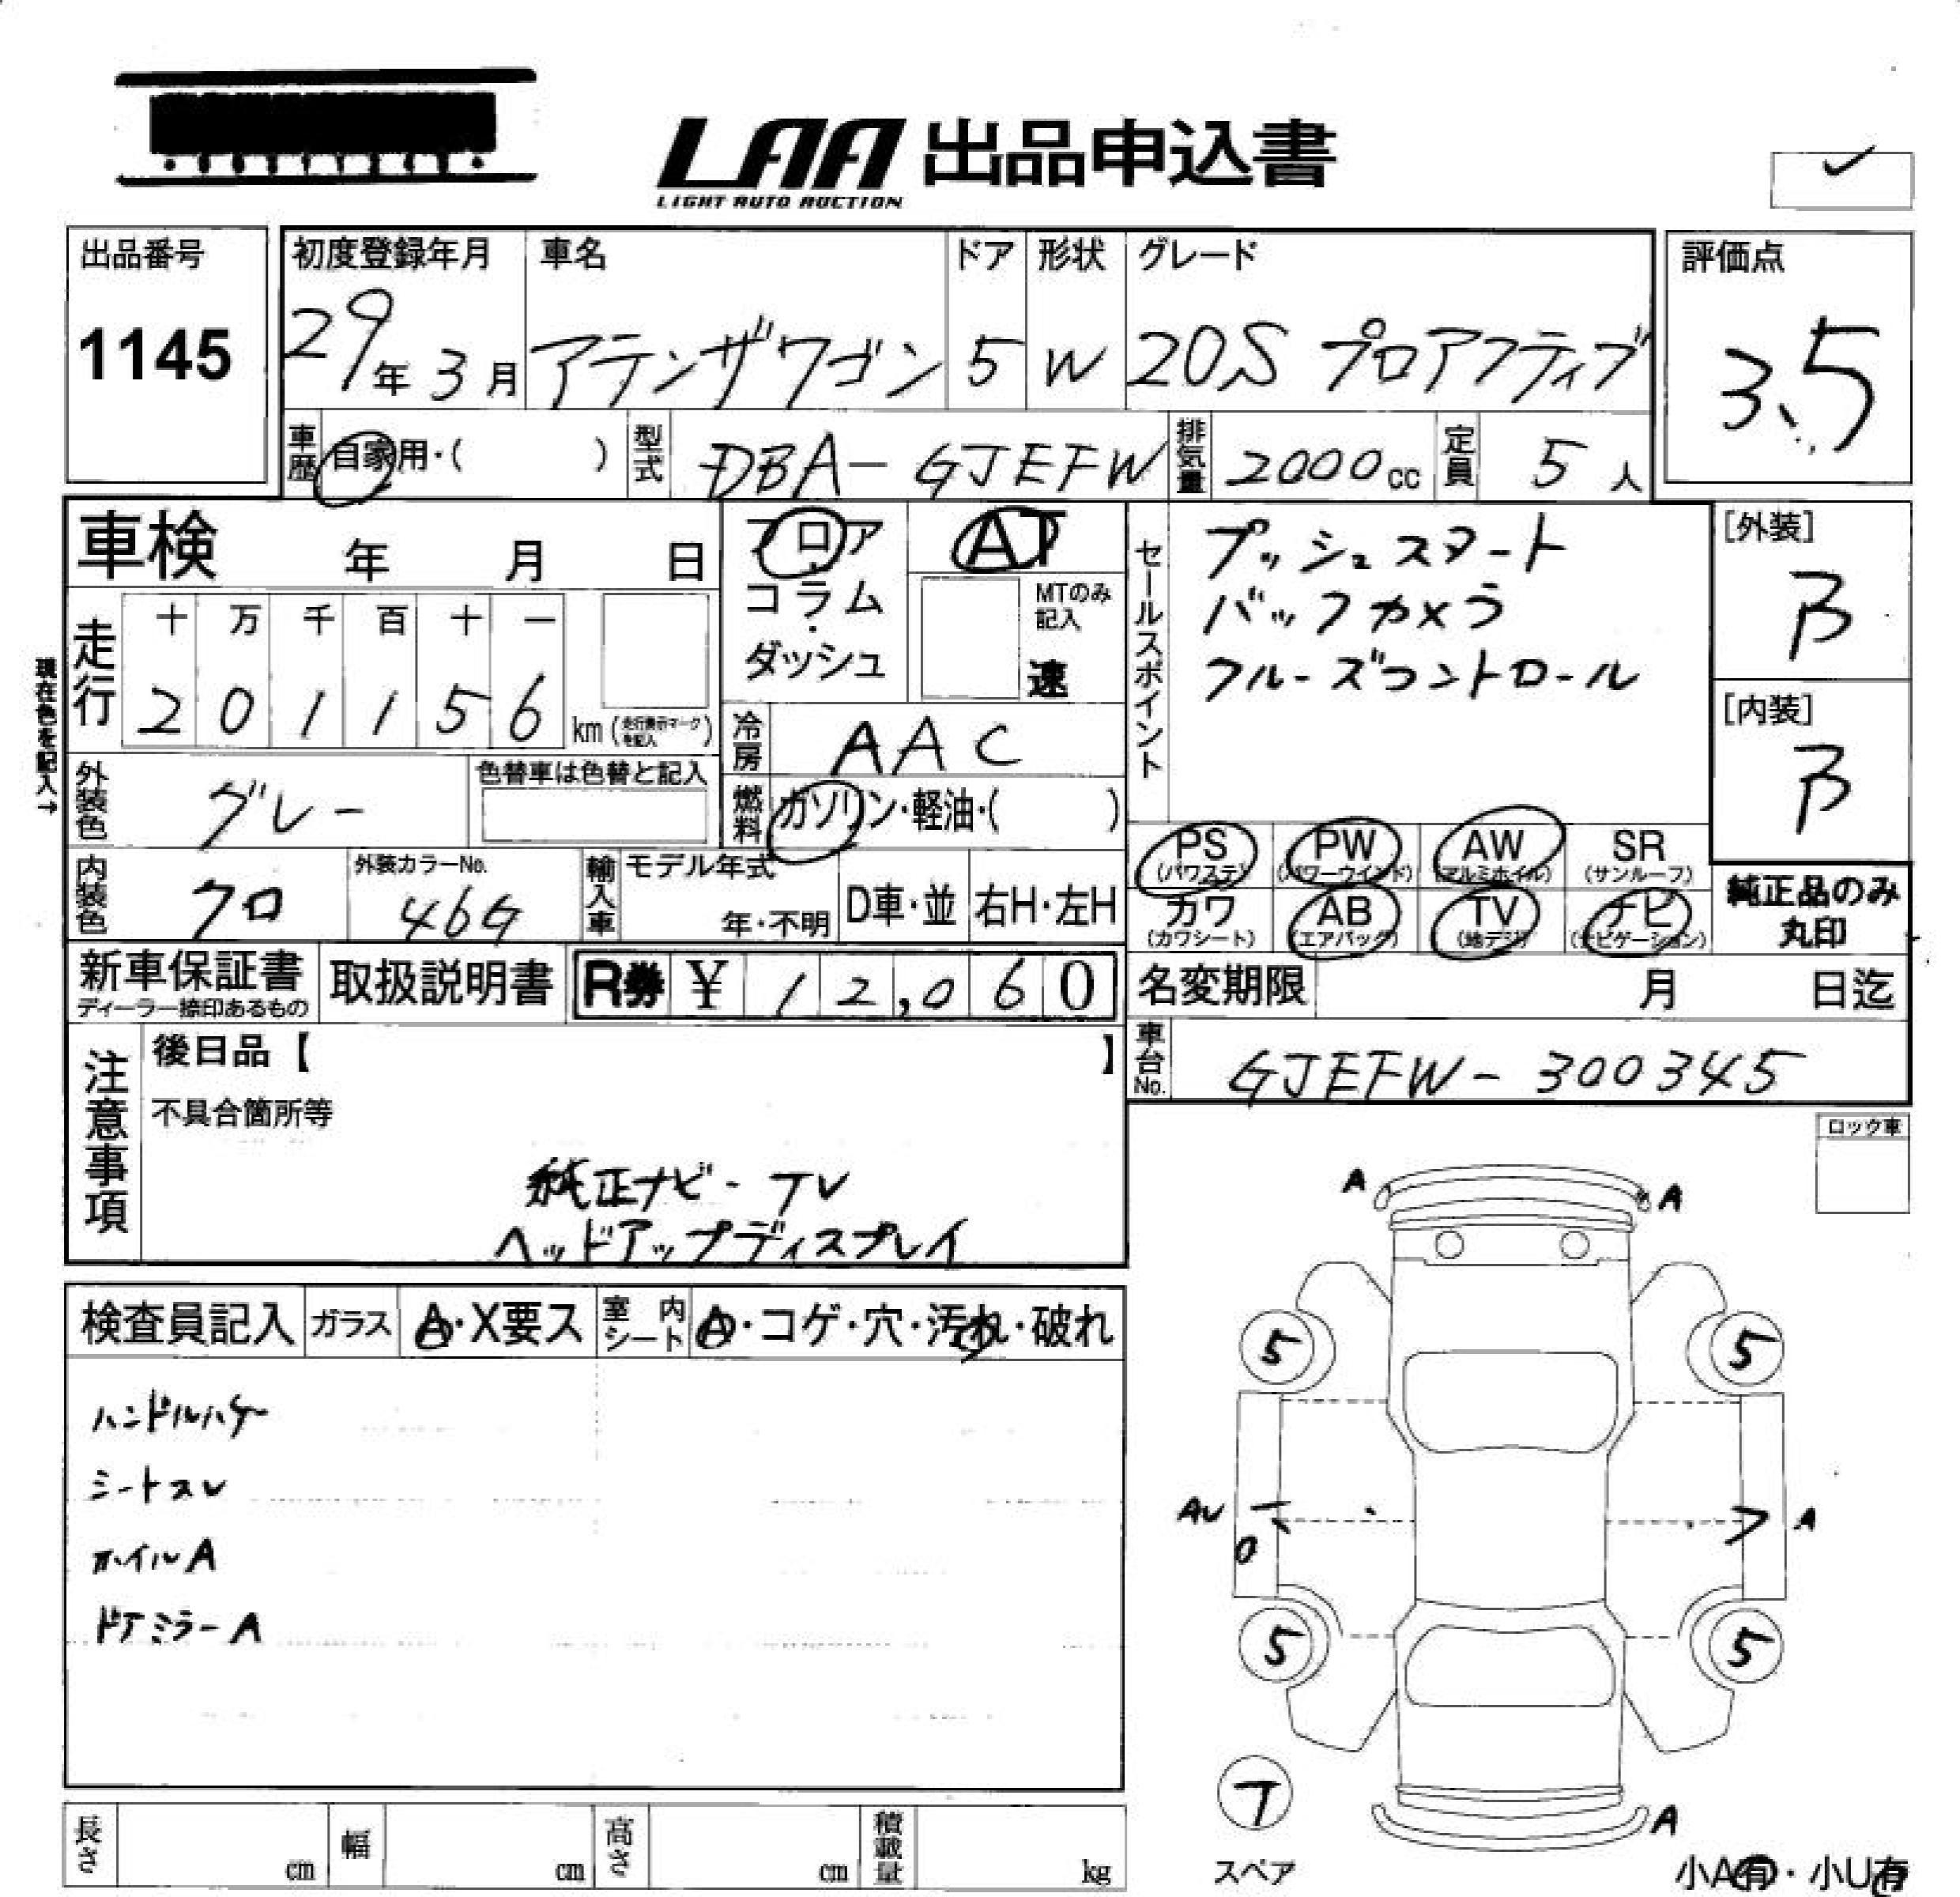 LAA 出品申込書
LIGHT AUTO AUCTION
出品番号
1145
初度登録年月
29年3月
車名
アテンザワゴン
ドア
5
形状
W
グレード
20S プロアクティブ
評価点
3.5
車歴
自家用・( )
型式
DBA-GJEFW
排気量
2000cc
定員
5人
車検 年 月 日
フロア
・
コラム
・
ダッシュ
AT
MTのみ
記入
速
セールスポイント
プッシュスタート
バックカメラ
クルーズコントロール
[外装]
B
[内装]
B
現在色を記入→
走行
十 万 千 百 十 一
2 0 1 1 5 6
km (走行表示マークを記入)
冷房
AAC
外装色
グレー
色替車は色替と記入
燃料
ガソリン・軽油・( )
PS
(パワステ)
PW
(パワーウインド)
AW
(アルミホイル)
SR
(サンルーフ)
カワ
(カワシート)
AB
(エアバッグ)
TV
(地デジ)
ナビ
(ナビゲーション)
純正品のみ
丸印
内装色
クロ
外装カラーNo.
46G
輸入車
モデル年式
年・不明
D車・並
右H・左H
新車保証書
ディーラー捺印あるもの
取扱説明書
R券 ¥ 12,060
名変期限 月 日迄
車台No.
GJEFW-300345
注意事項
後日品【 】
不具合箇所等
純正ナビ-TV
ヘッドアップディスプレイ
ロック車
A A
検査員記入
ガラス
A・X要ス
室内シート
A・コゲ・穴・汚れ・破れ
ハンドルハゲ
シートスレ
ホイルA
ドアミラーA
5 5
AU A
5 5
A
スペア
小A有・小U有
長さ cm
幅 cm
高さ cm
積載量 kg